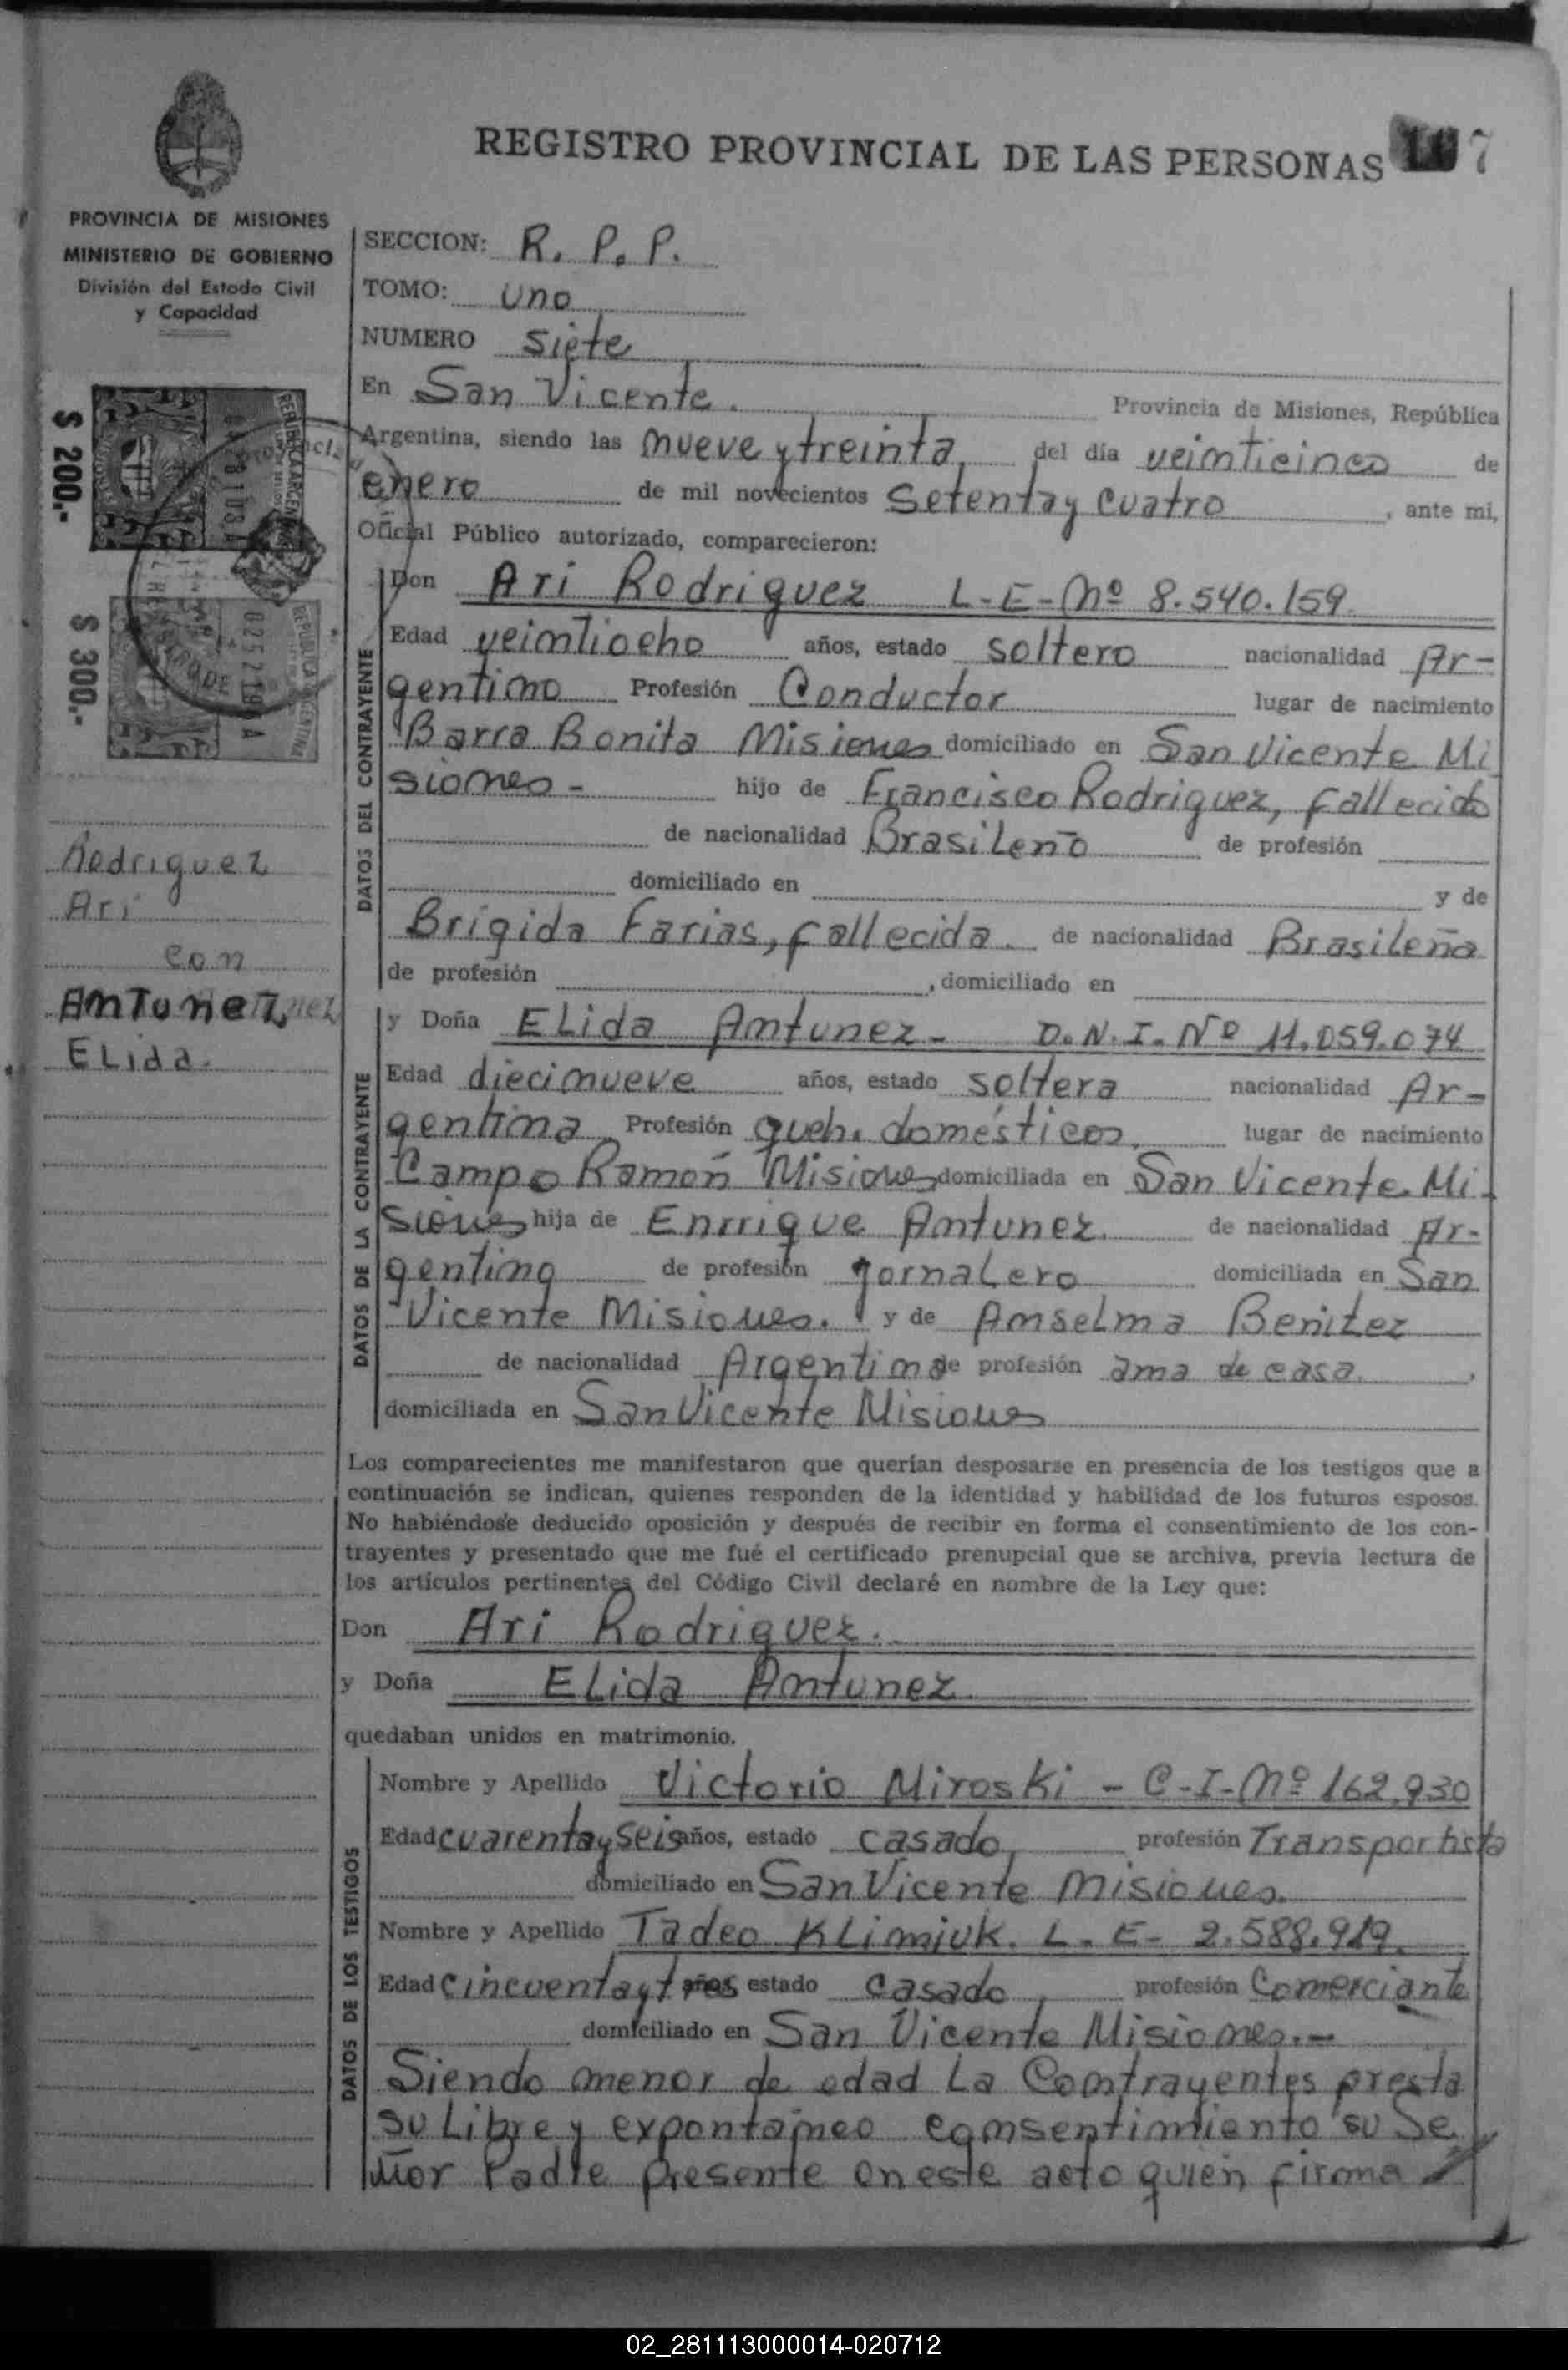 REGISTRO PROVINCIAL DE LAS PERSONAS 7
PROVINCIA DE MISIONES
MINISTERIO DE GOBIERNO
División del Estado Civil
y Capacidad
$ 200.-
$ 300.-
Rodriguez
Ari
con
Antunez
Elida.
SECCION: R. P. P.
TOMO: uno
NUMERO siete
En San Vicente. Provincia de Misiones, República
Argentina, siendo las nueve y treinta, del día veinticinco de
enero de mil novecientos setenta y cuatro, ante mi,
Oficial Público autorizado, comparecieron:
DATOS DEL CONTRAYENTE
Don Ari Rodriguez L-E-Nº 8.540.159
Edad veintiocho años, estado soltero nacionalidad Ar-
gentino Profesión Conductor lugar de nacimiento
Barra Bonita Misiones domiciliado en San Vicente Mi
siones - hijo de Francisco Rodriguez, fallecido
de nacionalidad Brasileño de profesión
domiciliado en y de
Brígida Farias, fallecida. de nacionalidad Brasileña
de profesión , domiciliado en
DATOS DE LA CONTRAYENTE
y Doña Elida Antunez- D.N.I. Nº 11.059.074
Edad diecinueve años, estado soltera nacionalidad Ar-
gentina Profesión queh. domésticos, lugar de nacimiento
Campo Ramón Misiones domiciliada en San Vicente Mi-
siones hija de Enrrique Antunez. de nacionalidad Ar-
gentino de profesión jornalero domiciliada en San
Vicente Misiones. y de Anselma Benitez
de nacionalidad Argentina de profesión ama de casa ,
domiciliada en San Vicente Misiones
Los comparecientes me manifestaron que querían desposarse en presencia de los testigos que a
continuación se indican, quienes responden de la identidad y habilidad de los futuros esposos.
No habiéndose deducido oposición y después de recibir en forma el consentimiento de los con-
trayentes y presentado que me fué el certificado prenupcial que se archiva, previa lectura de
los artículos pertinentes del Código Civil declaré en nombre de la Ley que:
Don Ari Rodriguez.
y Doña Elida Antunez
quedaban unidos en matrimonio.
DATOS DE LOS TESTIGOS
Nombre y Apellido Victorio Miroski - C-I-Nº 162.930
Edad cuarenta y seis años, estado casado, profesión Transportista
domiciliado en San Vicente Misiones.
Nombre y Apellido Tadeo Klimiuk. L. E- 2.588.919.
Edad cincuenta y tres años estado casado, profesión Comerciante
domiciliado en San Vicente Misiones.-
Siendo menor de edad la Contrayentes presta
su libre y expontáneo consentimiento su Se
ñor Padre presente en este acto quién firma
02_281113000014-020712